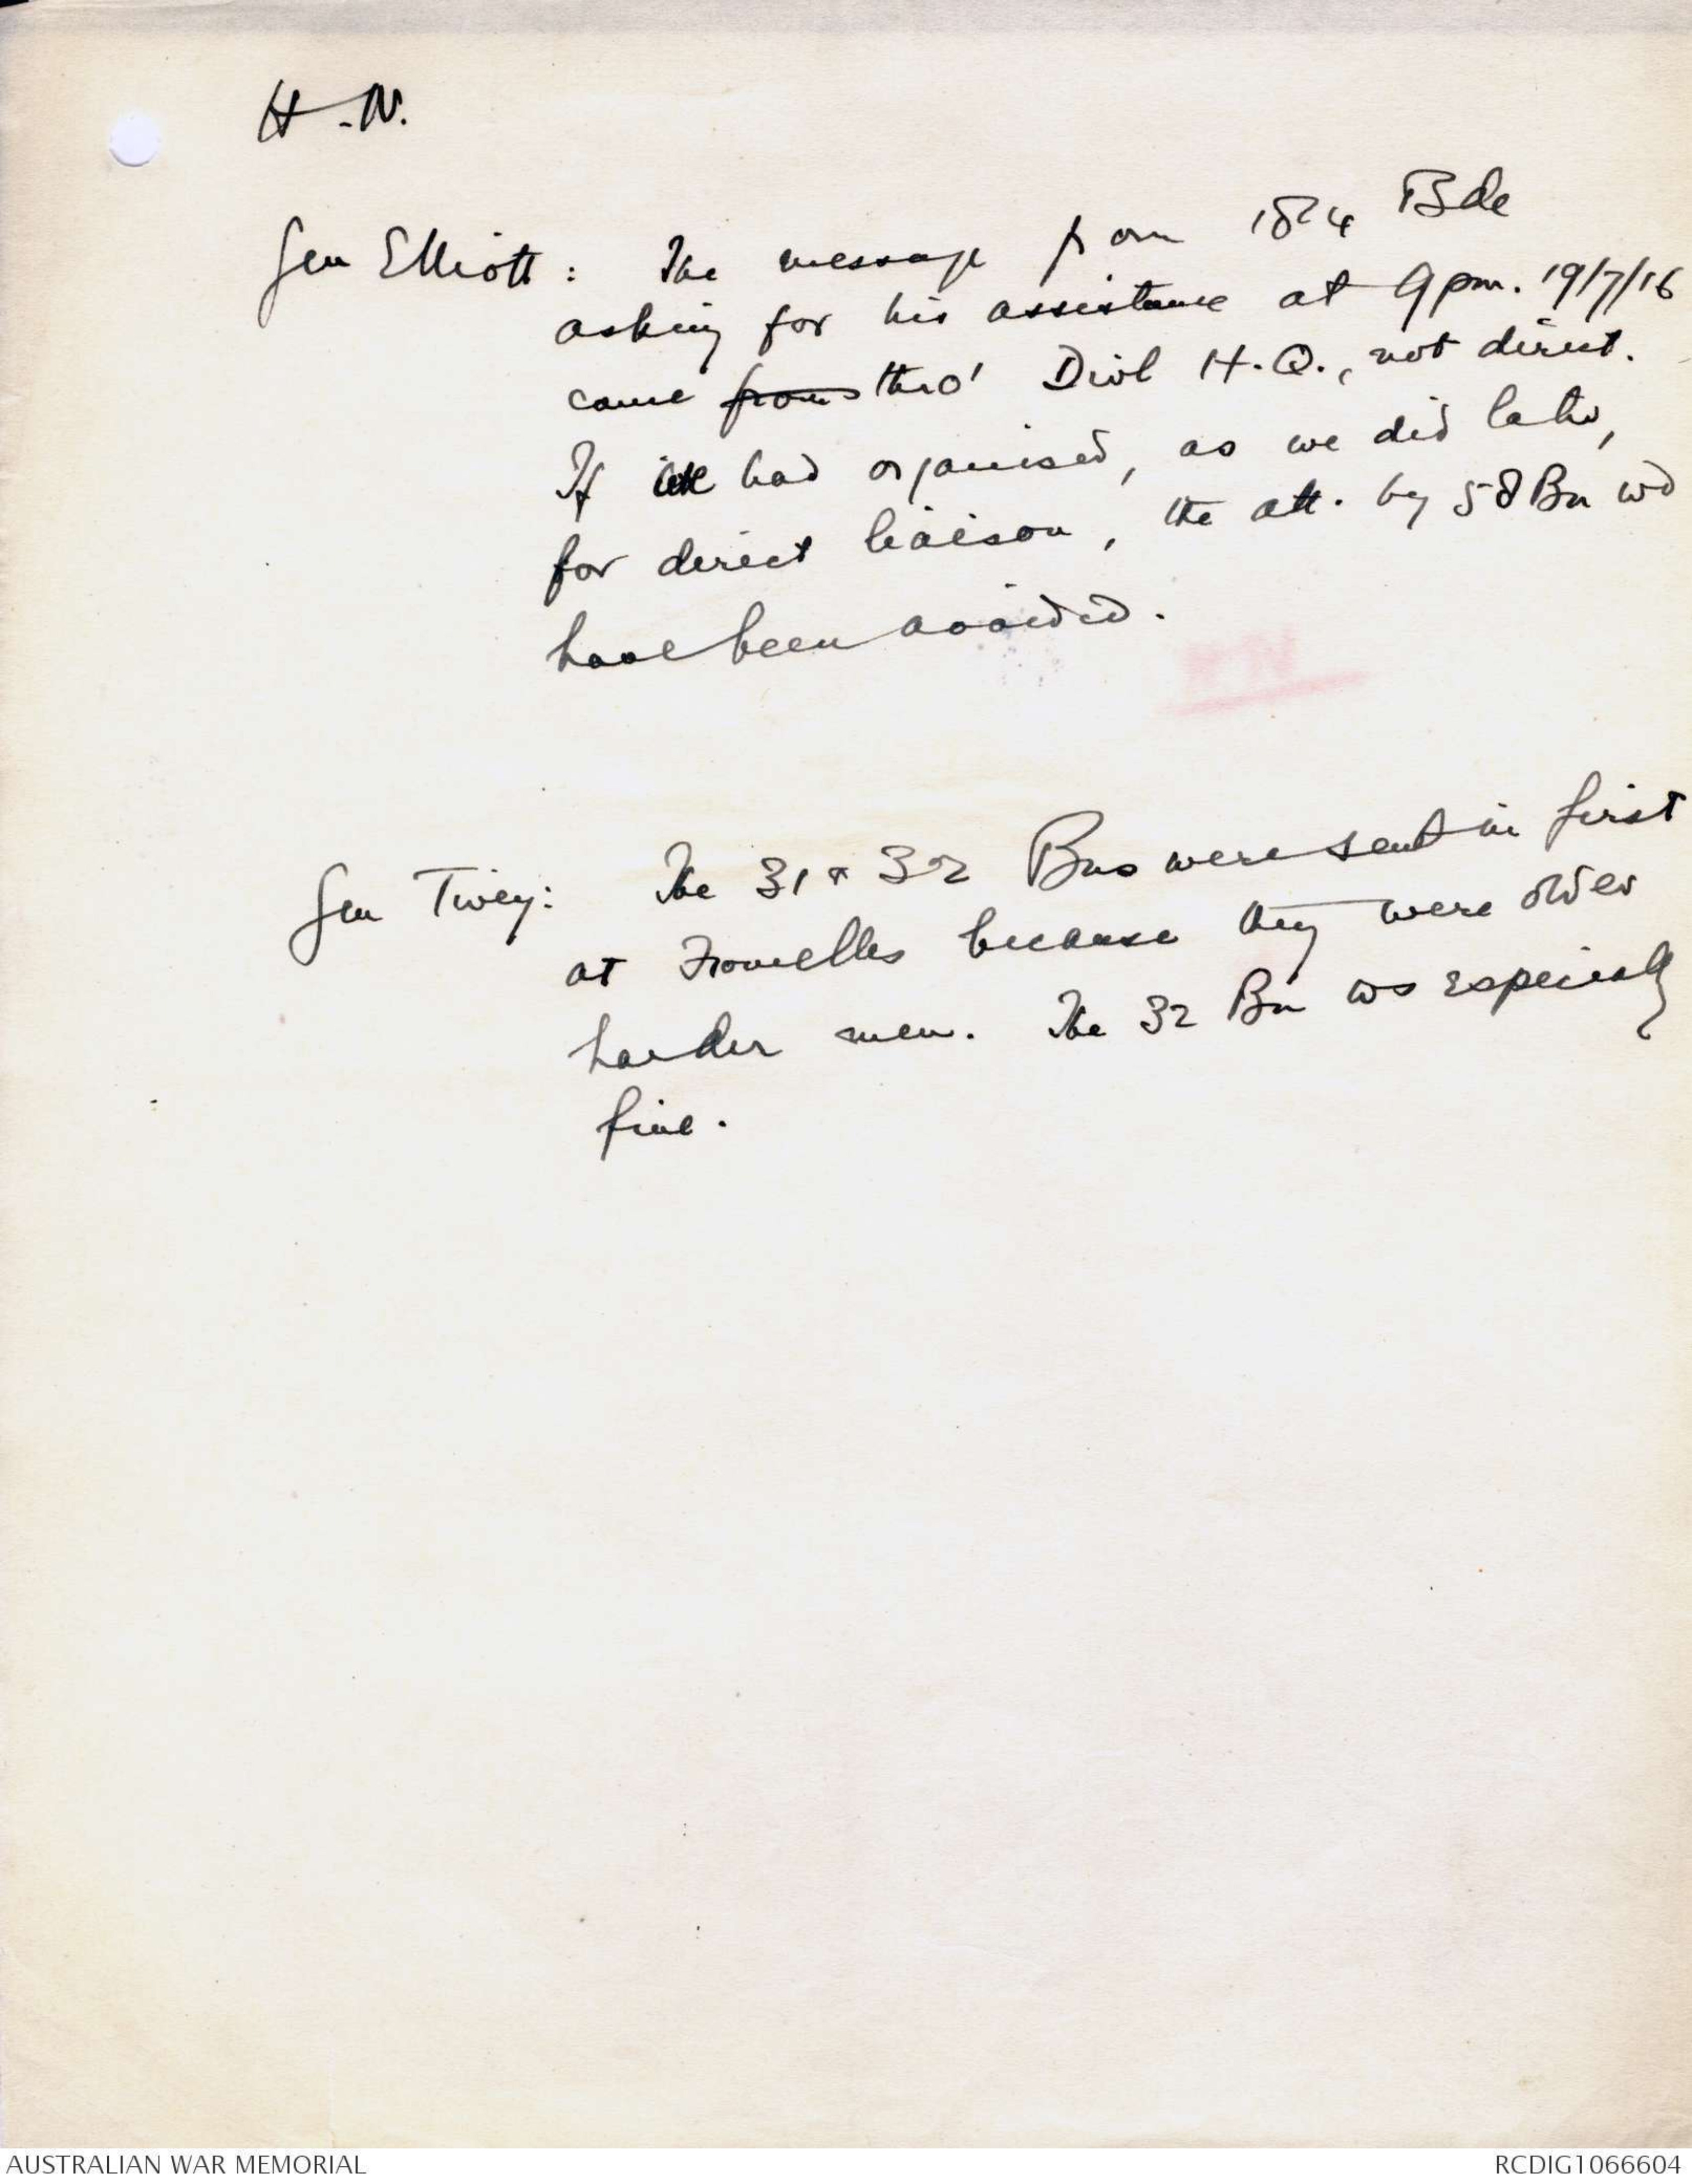 H.N.
Gen Elliott: The message from 184 Bde
asking for his assistance at 9pm. 19/7/16
came from thro' Divl H.Q., not direct.
If we had organised, as we did later,
for direct liaison, the att. by 58 Bn wd
have been avoided.
Gen Tivey: The 31 & 32 Bns were sent in first
at Fromelles because they were older
harder men. The 32 Bn ws especially
fine.
AUSTRALIAN WAR MEMORIAL
RCDIG1066604